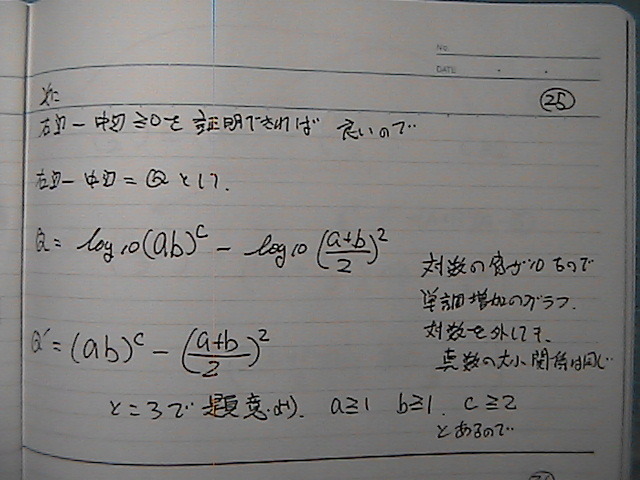 No.
DATE
㉕
次に
右辺－中辺≧0を証明できれば良いので
右辺－中辺＝Qとして、
Q = log10(ab)^c － log10((a+b)/2)^2
対数の底が10なので
単調増加のグラフ.
対数を外しても、
真数の大小関係は同じ
Q' = (ab)^c － ((a+b)/2)^2
ところで題意より、a≧1 b≧1. c≧2
とあるので